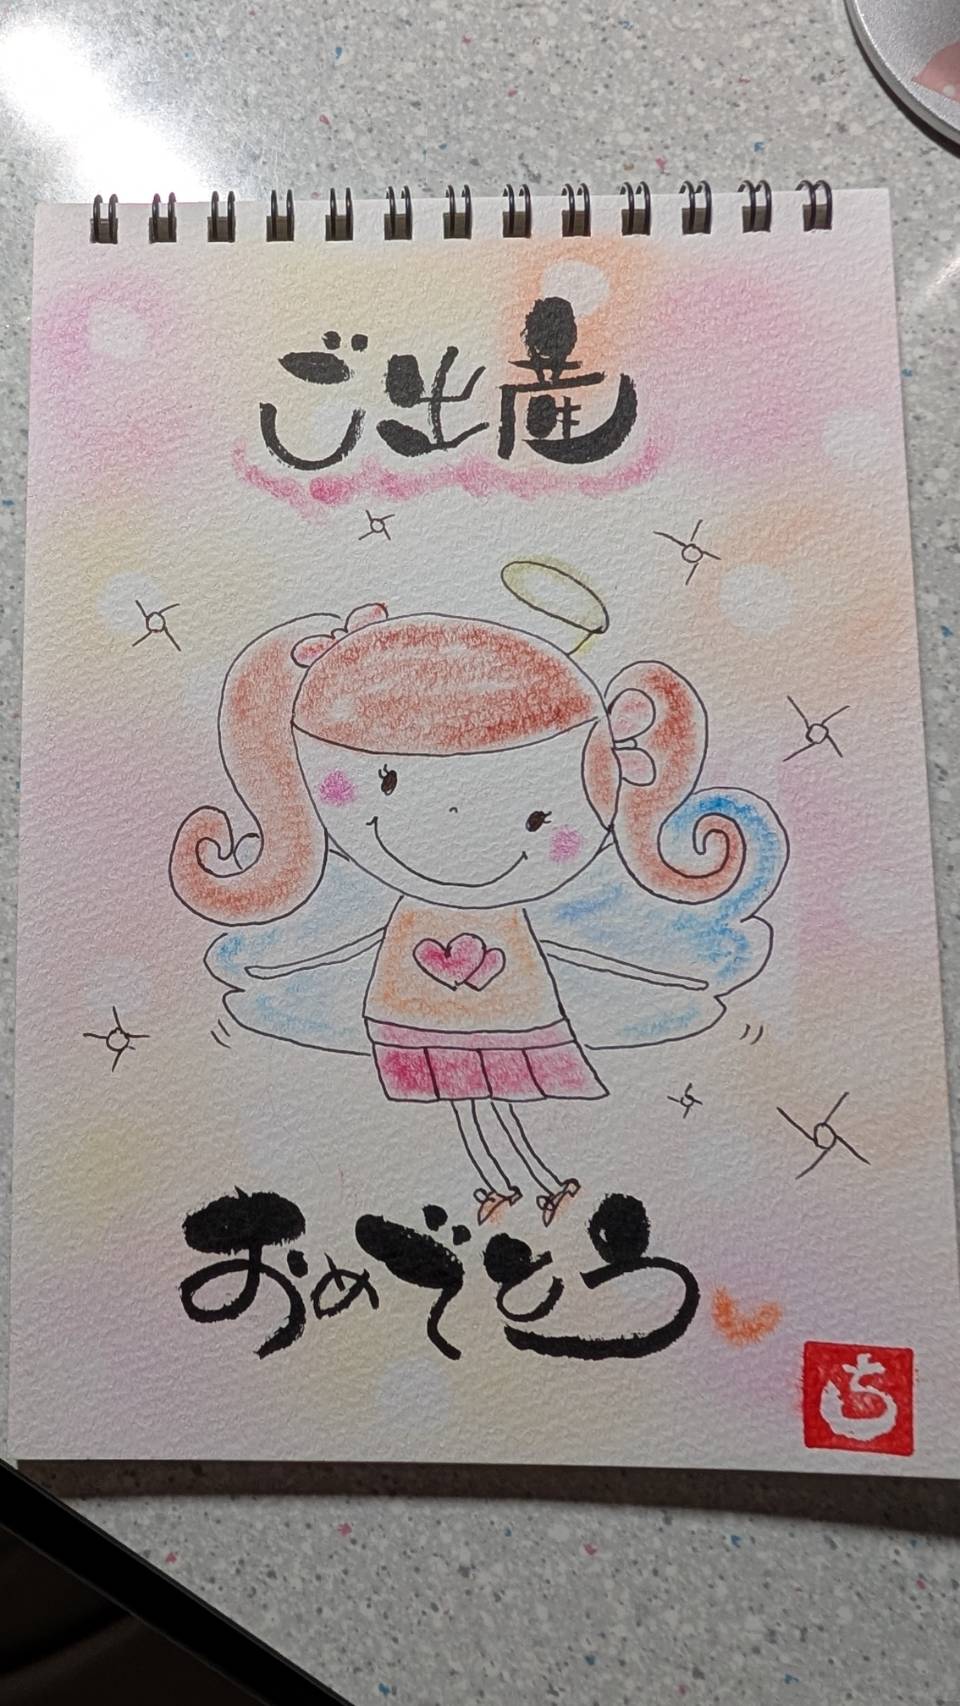 ご出産
おめでとう
ち